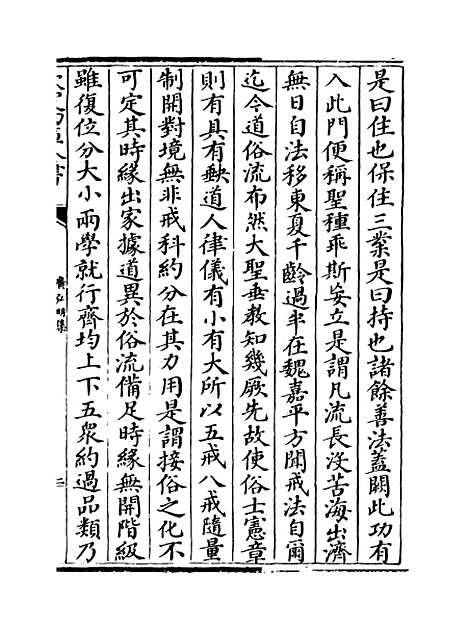 是曰住也保住三業是曰持也諸餘善法蓋闕此功有
入此門便稱聖種乖斯妄立是謂凡流長沒苦海出濟
無日自法移東夏千齡過半在魏嘉平方聞戒法自爾
迄今道俗流布然大聖垂教知幾厥先故使俗士憲章
則有具有缺道人律儀有小有大所以五戒八戒隨量
制開對境無非戒科約分在其力用是謂接俗之化不
可定其時緣出家據道異於俗流備足時緣無開階級
雖復位分大小兩學就行齊均上下五衆約過品類乃
廣弘明集
三